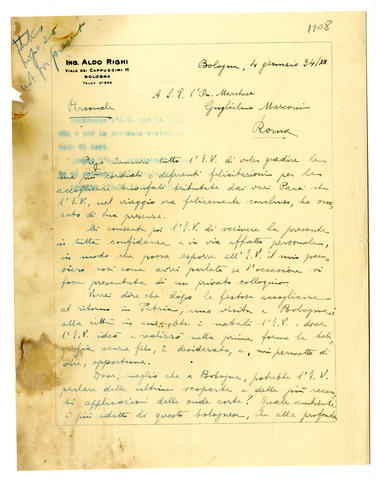 1908
not for present
ING. ALDO RIGHI
VIALE DEI CAPPUCCINI 11
BOLOGNA
Bologna, 4 gennaio 34/XII
A S. E. l'On. Marchese
Guglielmo Marconi
Personale
Roma
Prego innanzi tutto l'E.V. di voler gradire le
mie più cordiali e deferenti felicitazioni per le
accoglienze trionfali tributate dai vari Paesi che
l'E.V., nel viaggio ora felicemente concluso, ha ono-
rato di Sua presenza.
Mi consenta poi l'E.V. di scrivere la presente
in tutta confidenza e in via affatto personale,
in modo che possa esporre all'E.V. il mio pen-
siero così come avrei parlato se l'occasione si
fosse presentata di un privato colloquio.
Vorrei dire che dopo le festose accoglienze
al ritorno in Patria, una visita a Bologna,
alla città in cui ebbe i natali l'E.V. e dove
l'E.V. ideò e realizzò nella prima forma la tele-
grafia senza fili, è desiderata, e, mi permetto di
dire, opportuna.
Dove, meglio che a Bologna, potrebbe l'E.V.
parlare delle ultime scoperte e delle più recen-
ti applicazioni delle onde corte? Quale ambiente
è più adatto di questo bolognese, che alla profonda